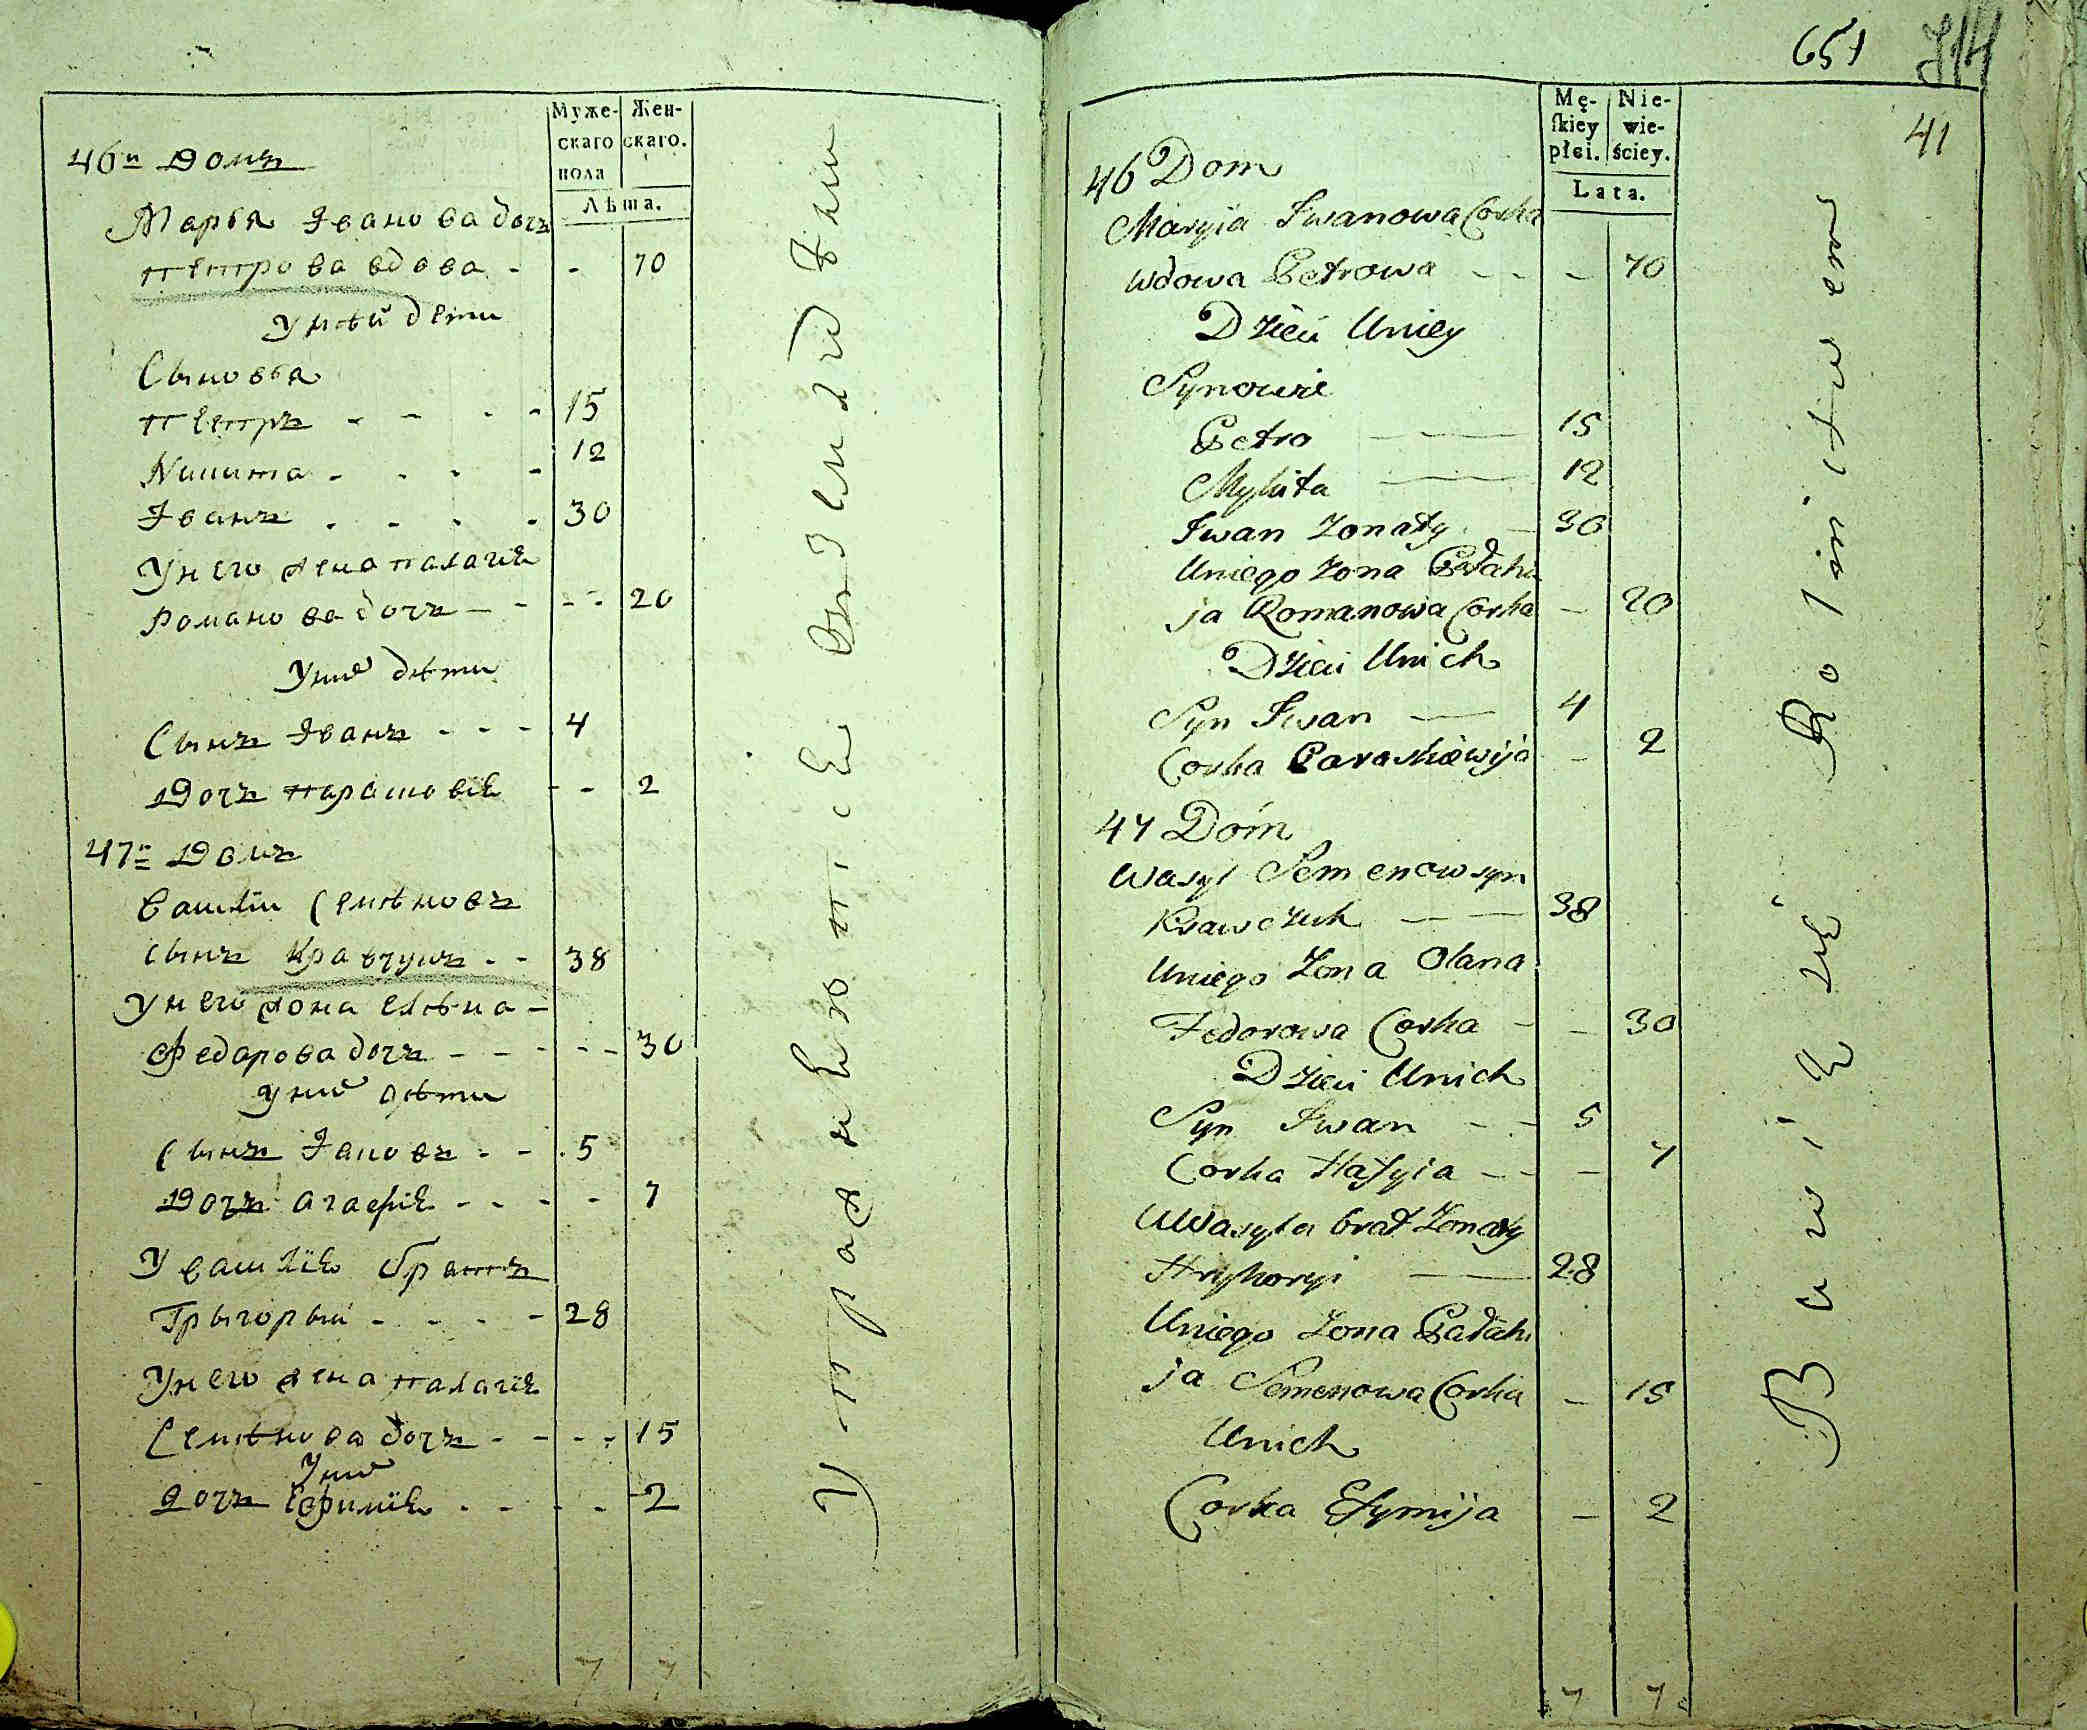 Муже-
скаго
пола
Жен-
скаго.
Лѣта.
46й Домъ
Марья Іванова дочъ
петрова вдова - - 70
У ней дети
Сыновья
петръ - - - - 15
Никита - - - - 12
Іванъ - - - - 30
У него жена палагія
Романова дочъ - - - - 20
У них дѣти
Сынъ Іванъ - - - 4
Дочъ парасковія - - 2
47й Домъ
Василій Семѣновъ
сынъ Кравчукъ - - 38
У него жона елѣна -
Федарова дочъ - - - - - 30
У них дѣти
Сынъ Іановъ - - 5
Дочъ агафія - - - - 7
У василія братъ
Грыгорый - - - - 28
У него жена палагія
Семѣнова дочъ - - - - 15
У них
Дочъ Ефимія - - - - 2
7 7
Упражняются в земледѣлии
651
714
41
Mę-
skiey
płci.
Nie-
wie-
ściey.
Lata.
46 Dom
Maryia Iwanowa Corka
wdowa Petrowa - - - 70
Dzieci Uniey
Synowie
Petro — 15
Mykita — 12
Iwan Zonaty - 30
Uniego Zona Pałahi
ja Romanowa Corka - 20
Dzieci Unich
Syn Iwan — 4
Corka Paraskiewija - 2
47 Dom
Wasyl Semenow syn
Krawczuk — 38
Uniego Zona Olana
Fedorowa Corka - - 30
Dzieci Unich
Syn Iwan - - 5
Corka Hafyia - - - 7
U Wasyla brat Zonaty
Hryhoryi — 28
Uniego Zona Pałahi
ja Semenowa Corka - 15
Unich
Corka Efymija - 2
7 7
Bawią się Rolnictwem